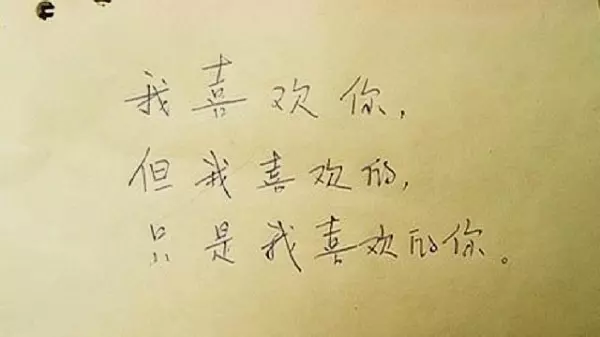 我喜欢你,
但我喜欢的,
只是我喜欢的你。